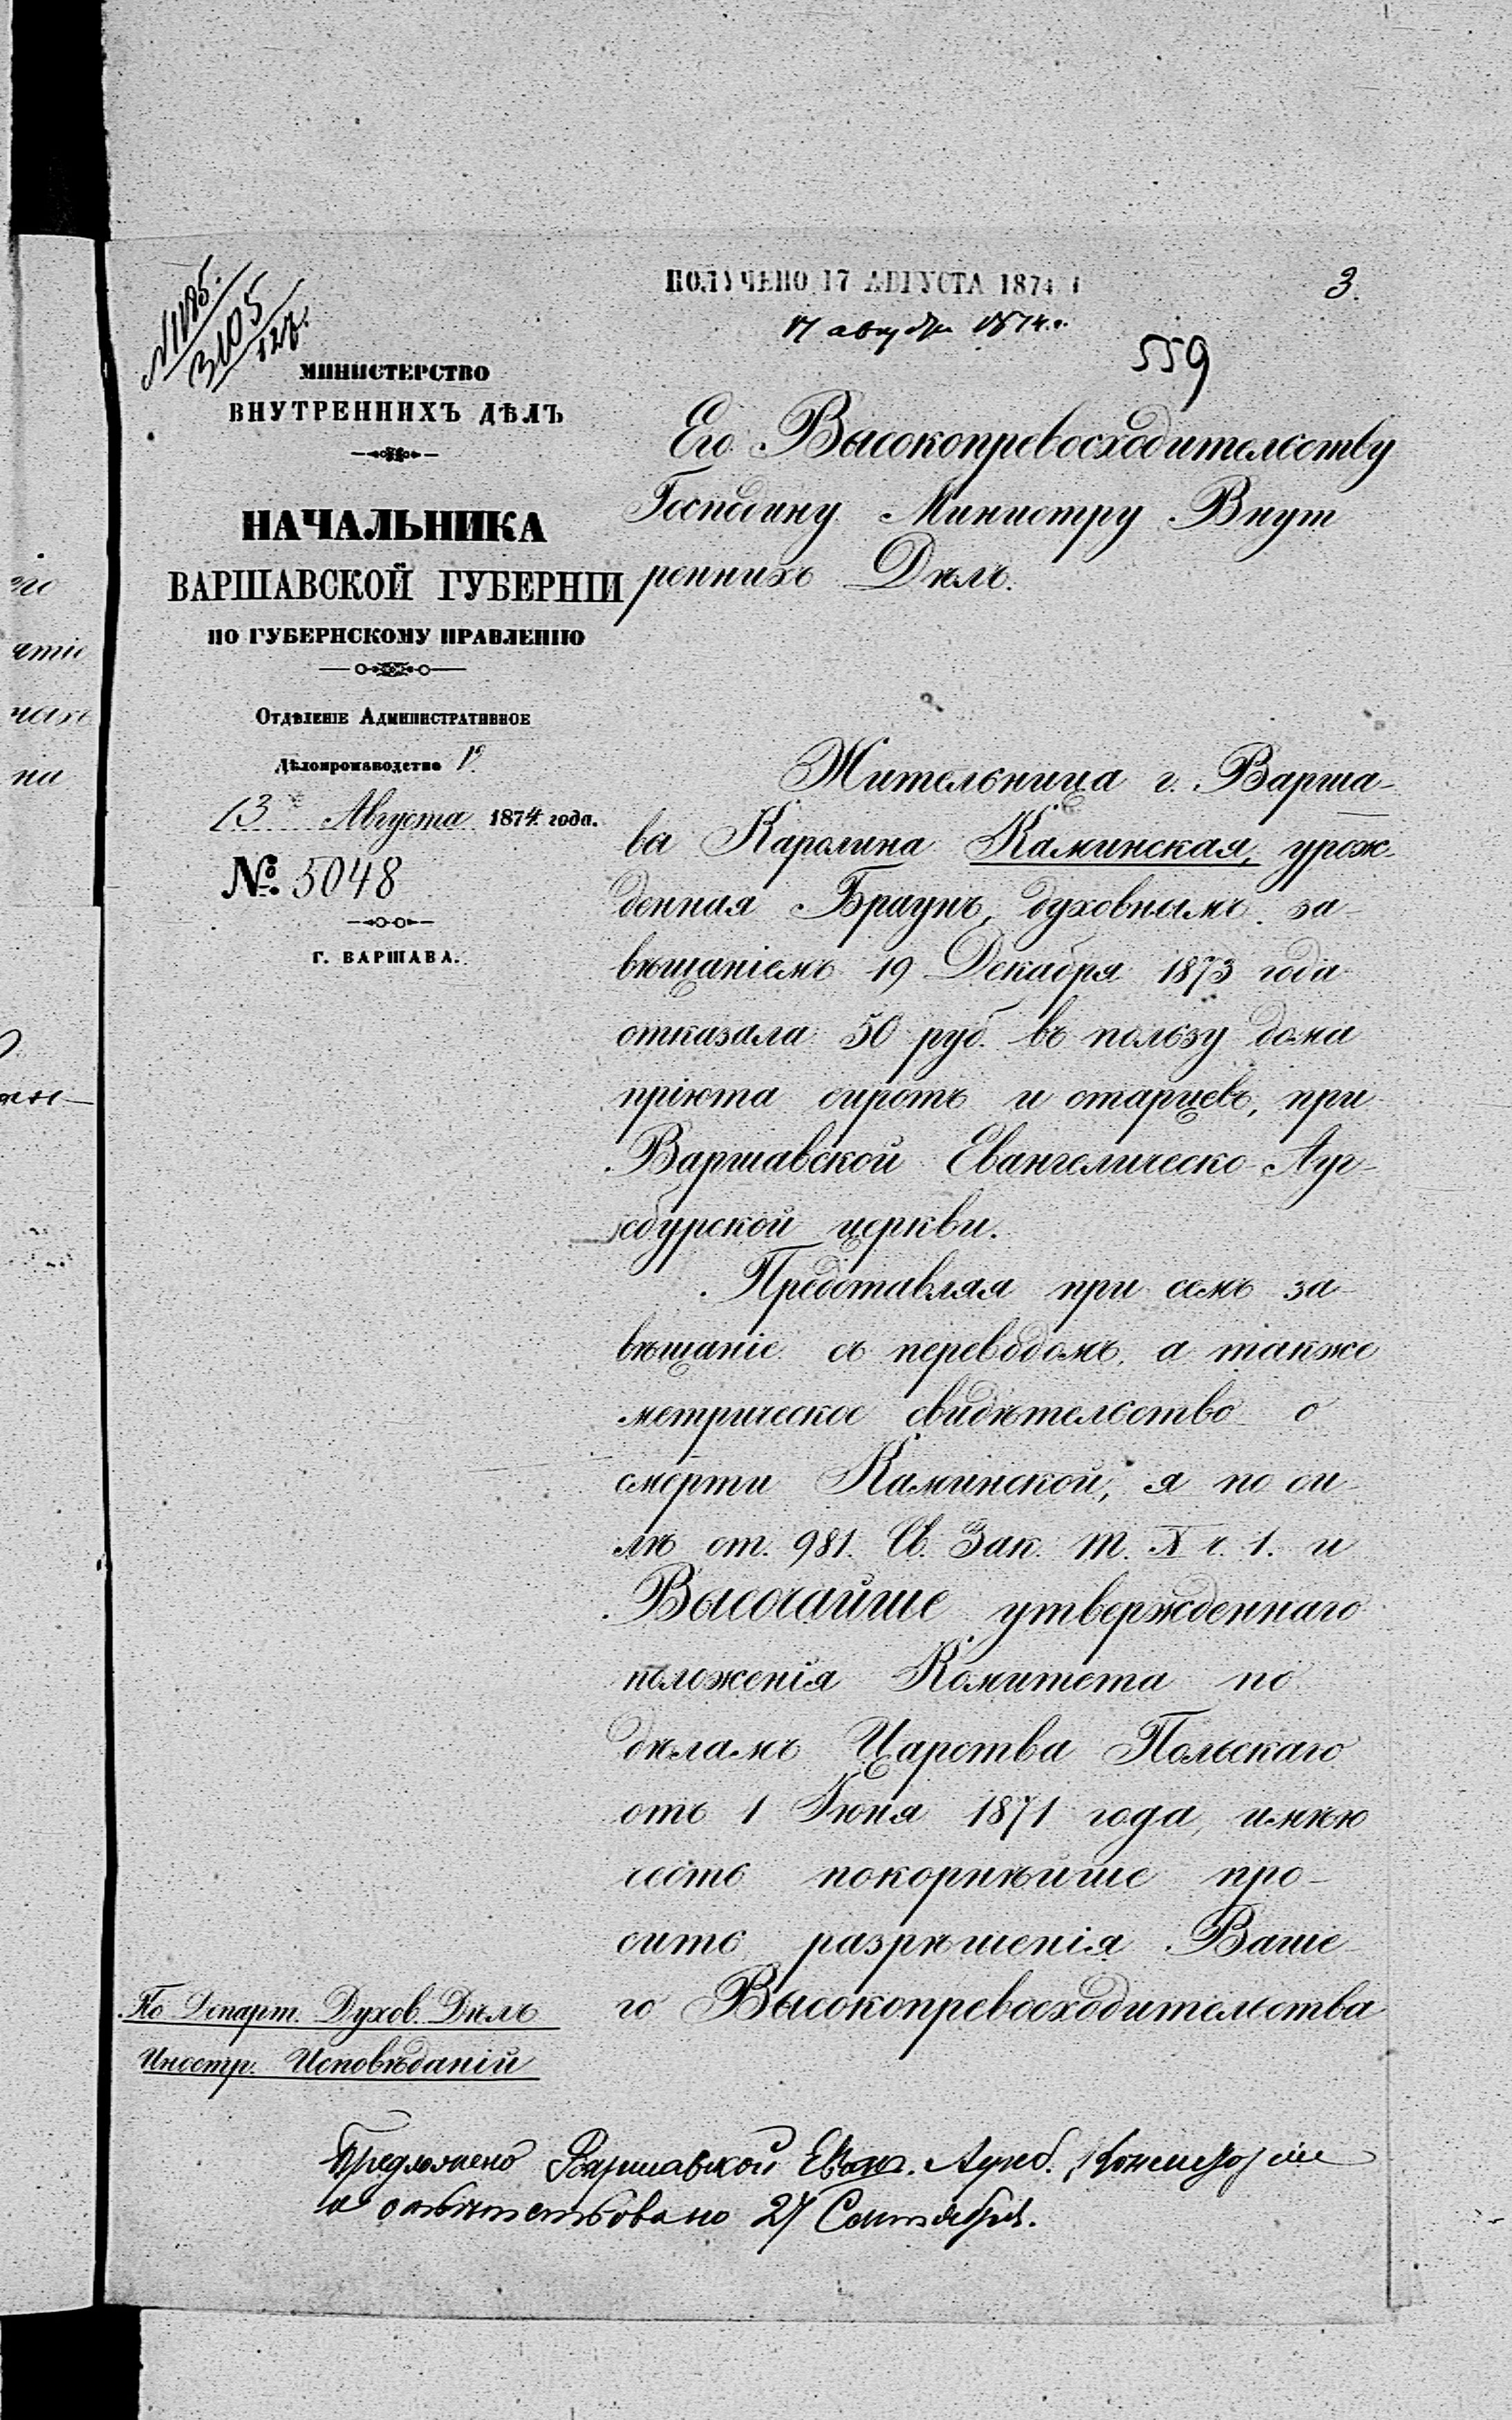 ПОЛУЧЕНО 17 АВГУСТА 1874
17 августа 1874 г.
3.
559
3105
МИНИСТЕРСТВО
ВНУТРЕННИХЪ ДѢЛЪ
НАЧАЛЬНИКА
ВАРШАВСКОЙ ГУБЕРНІИ
ПО ГУБЕРНСКОМУ ПРАВЛЕНІЮ
ОТДѢЛЕНІЕ АДМИНИСТРАТИВНОЕ
Дѣлопроизводство
13 Августа 1874 года.
№ 5048
Г. ВАРШАВА.
Его Высокопревосходительству
Господину Министру Внут
реннихъ Дѣлъ.
Жительница г. Варша-
вы Каролина Каминская, урож-
денная Браунъ, духовнымъ за-
вѣщаніемъ 19 Декабря 1873 года
отказала 50 руб. въ пользу дома
пріюта сиротъ и старцевъ, при
Варшавской Евангелическо-Ауг-
сбурской церкви.
Представляя при семъ за-
вѣщаніе съ переводомъ, а также
метрическое свидѣтельство о
смерти Каминской, я по си-
лѣ ст. 981. Св. Зак. т. X ч. 1. и
Высочайше утвержденнаго
положенія Комитета по
дѣламъ Царства Польскаго
отъ 1 Іюня 1871 года, имѣю
честь покорнѣйше про-
сить разрѣшенія Ваше-
го Высокопревосходительства
По Департ. Духов. Дѣлъ
Иностр. Исповѣданій
Предложено Варшавской Еван. Аугсб. Консисторіи
и отвѣтствовано 27 Сентября.